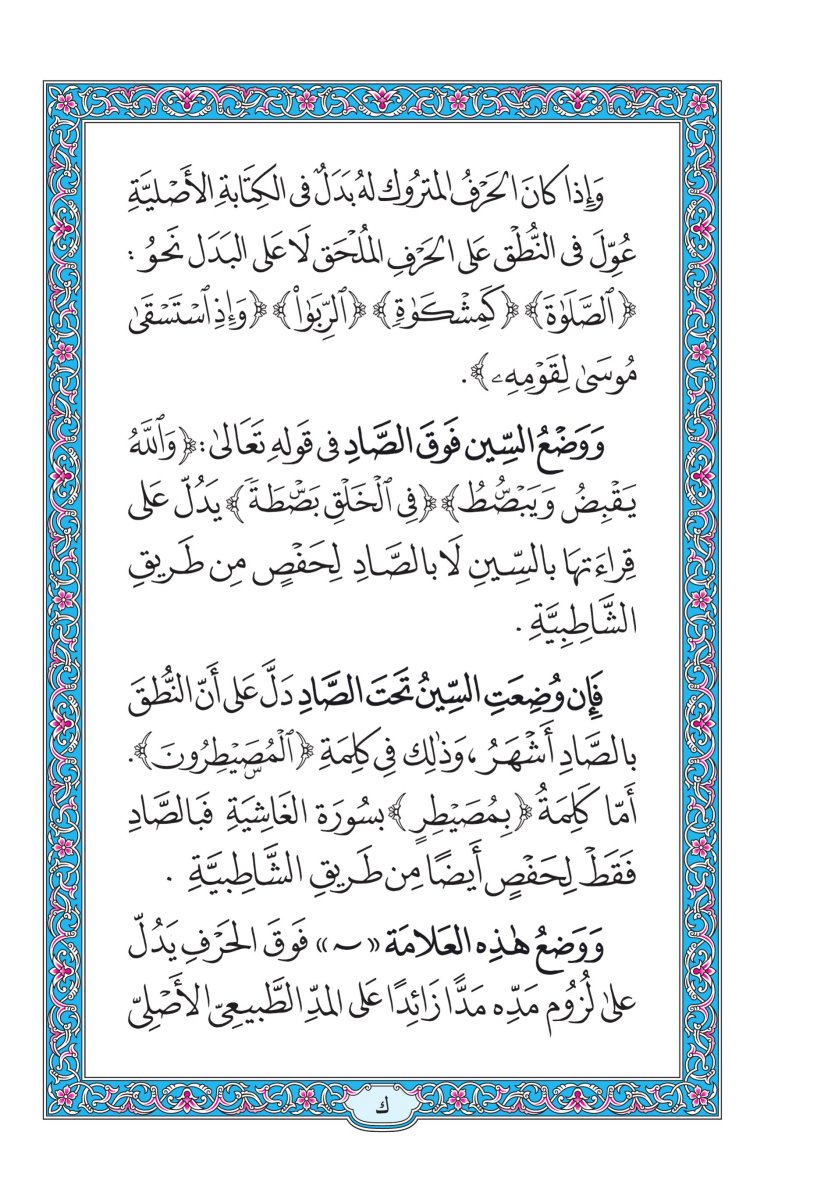 وَإِذا كانَ الحَرْفُ المتروك لهُ بَدَلٌ فى الكِتَابةِ الأَصْليَّةِ
عُوِّلَ فى النُّطْق عَلى الحَرْفِ المُلْحَق لَا عَلى البَدَل نَحوُ :
﴿ٱلصَّلَوٰةَ﴾ ﴿كَمِشْكَوٰةٍ﴾ ﴿ٱلرِّبَوٰا۟﴾ ﴿وَإِذِ ٱسْتَسْقَىٰ
مُوسَىٰ لِقَوْمِهِۦ﴾ .
وَوَضْعُ السِّين فَوقَ الصَّادِ فى قَولهِ تَعَالىٰ : ﴿وَٱللَّهُ
يَقْبِضُ وَيَبْصُۜطُ﴾ ﴿فِي ٱلْخَلْقِ بَصْۜطَةً﴾ يَدُلّ عَلى
قِراءَتهَا بالسِّينِ لَا بالصَّادِ لِحَفْصٍ مِن طَريقِ
الشَّاطِبِيَّةِ .
فَإِن وُضِعَتِ السِّينُ تَحتَ الصَّادِ دَلَّ عَلى أَنّ النُّطقَ
بالصَّادِ أَشْهَرُ ، وَذٰلِك فِي كلِمَةِ ﴿ٱلْمُصَۣيْطِرُونَ﴾.
أمّا كَلِمَةُ ﴿بِمُصَيْطِرٍ﴾ بسُورَة الغَاشِيَةِ فَبالصَّادِ
فَقَطْ لِحَفْصٍ أَيضًا مِن طَريقِ الشَّاطِبيَّةِ .
وَوَضعُ هٰذِه العَلامَة «~» فَوقَ الحَرْفِ يَدُلّ
علىٰ لُزُوم مَدِّه مَدًّا زَائِدًا عَلى المدِّ الطَّبيعىّ الأَصْلِىّ
ك